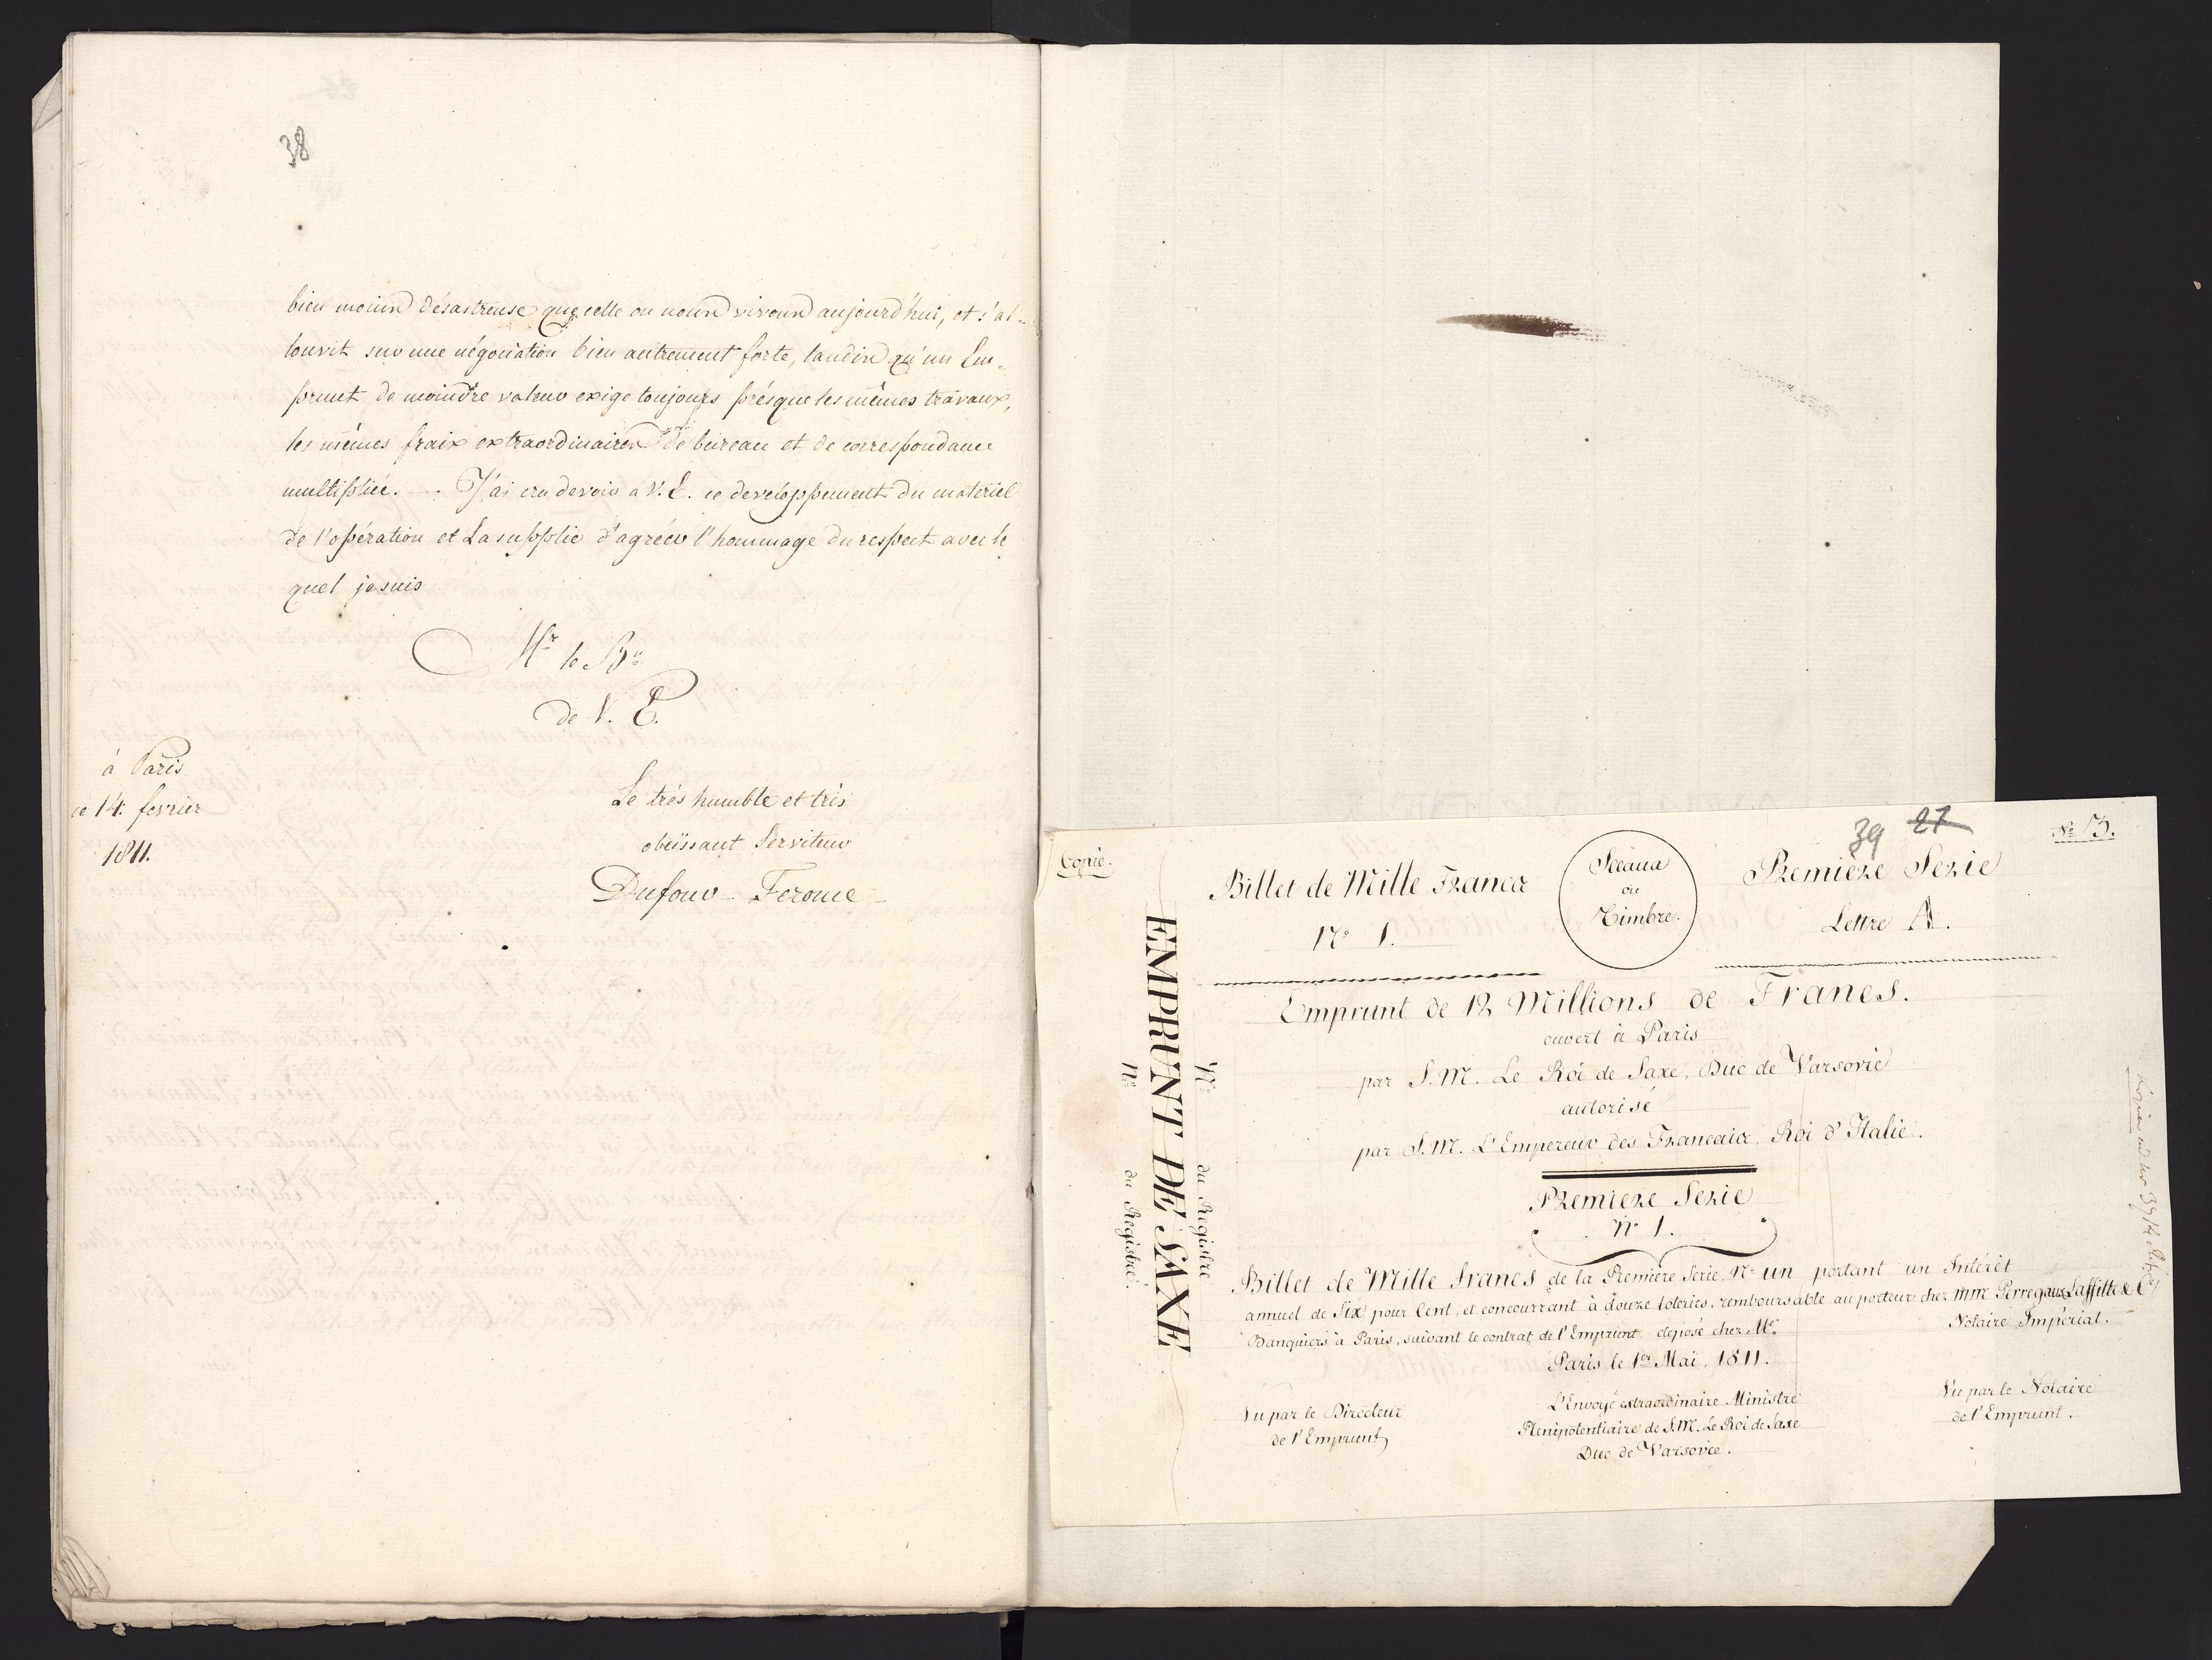 38
bien moins désastreuse que celle ou nous vivons aujourd'hui, et s'as-
souvit sur une négociation bien autrement forte, tandis qu'un Em-
prunt de moindre valeur exige toujours présque les mêmes travaux,
les mêmes fraix extraordinaires de bureau et de correspondance
multipliée. J'ai cru devoir a V. E. ce developpement du materiel
de l'opération et La supplie d'agréer l'hommage du respect avec le
quel je suis
Mr le Bn
de V. E.
à Paris
ce 14. fevrier
1811.
Le très humble et très
obeïssant Serviteur
Dufour Feronce
Copie.
39 27
No 13.
Billet de Mille Francs
No 1.
Sceaux
ou
Timbre.
Première Serie
Lettre A.
EMPRUNT DE SAXE
No du Registre
No du Registre.
Emprunt de 12 Millions de Francs.
ouvert à Paris
par S. M. Le Roi de Saxe, Duc de Varsovie
autorisé
par S. M. L'Empereur des Français, Roi d'Italie.
Premiere Serie
No 1.
Billet de Mille francs de la Premiere Serie, No un portant un Intérêt
annuel de Six pour Cent, et concourrant à douze loteries, remboursable au porteur chez MM Perregaux Laffitte & Ce
Banquiers à Paris, suivant le contrat de l'Emprunt déposé chez Me
Notaire Impérial.
Paris le 1er Mai, 1811.
Vu par le Directeur
de l'Emprunt
L'Envoyé extraordinaire Ministre
Plenipotentiaire de S. M. Le Roi de Saxe
Duc de Varsovie.
Vu par le Notaire
de l'Emprunt.